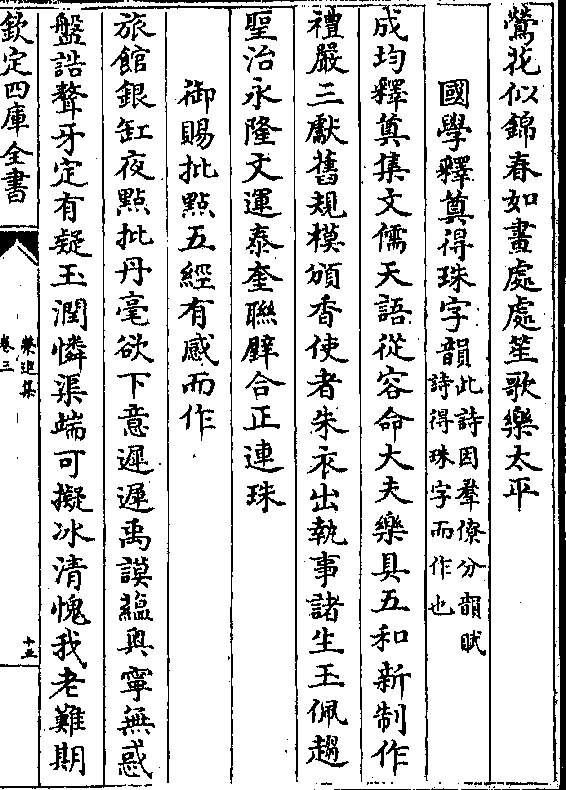 鶯花似錦春如畫處處笙歌樂太平
國學釋奠得珠字韻此詩因羣僚分韻賦
詩得珠字而作也
成均釋奠集文儒天語從容命大夫樂具五和新制作
禮嚴三獻舊規模頒香使者朱衣出執事諸生玉佩趨
聖治永隆文運泰奎聯壁合正連珠
御賜批點五經有感而作
旅館銀缸夜點批丹毫欲下意遲遲禹謨蘊奥寧無惑
盤誥聱牙定有疑玉潤憐渠端可擬冰清愧我老難期
欽定四庫全書
榮進集
卷三
十五